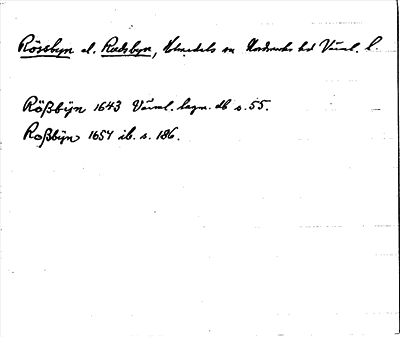 Rössbyn el. Rodsbyn, Holmedals sn Nordmarks hd Värml. l.
Rößbÿn 1643 Värml. lagm. db s. 55.
Roßbÿn 1654 ib. s. 186.